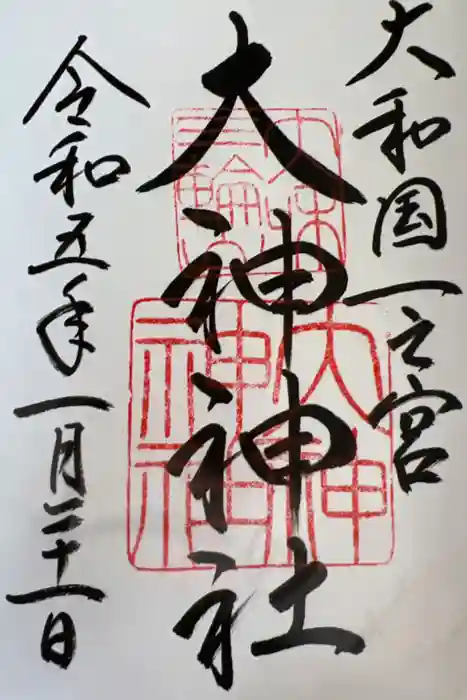 大和国一之宮
大神神社
令和五年一月二十一日
大神
神社